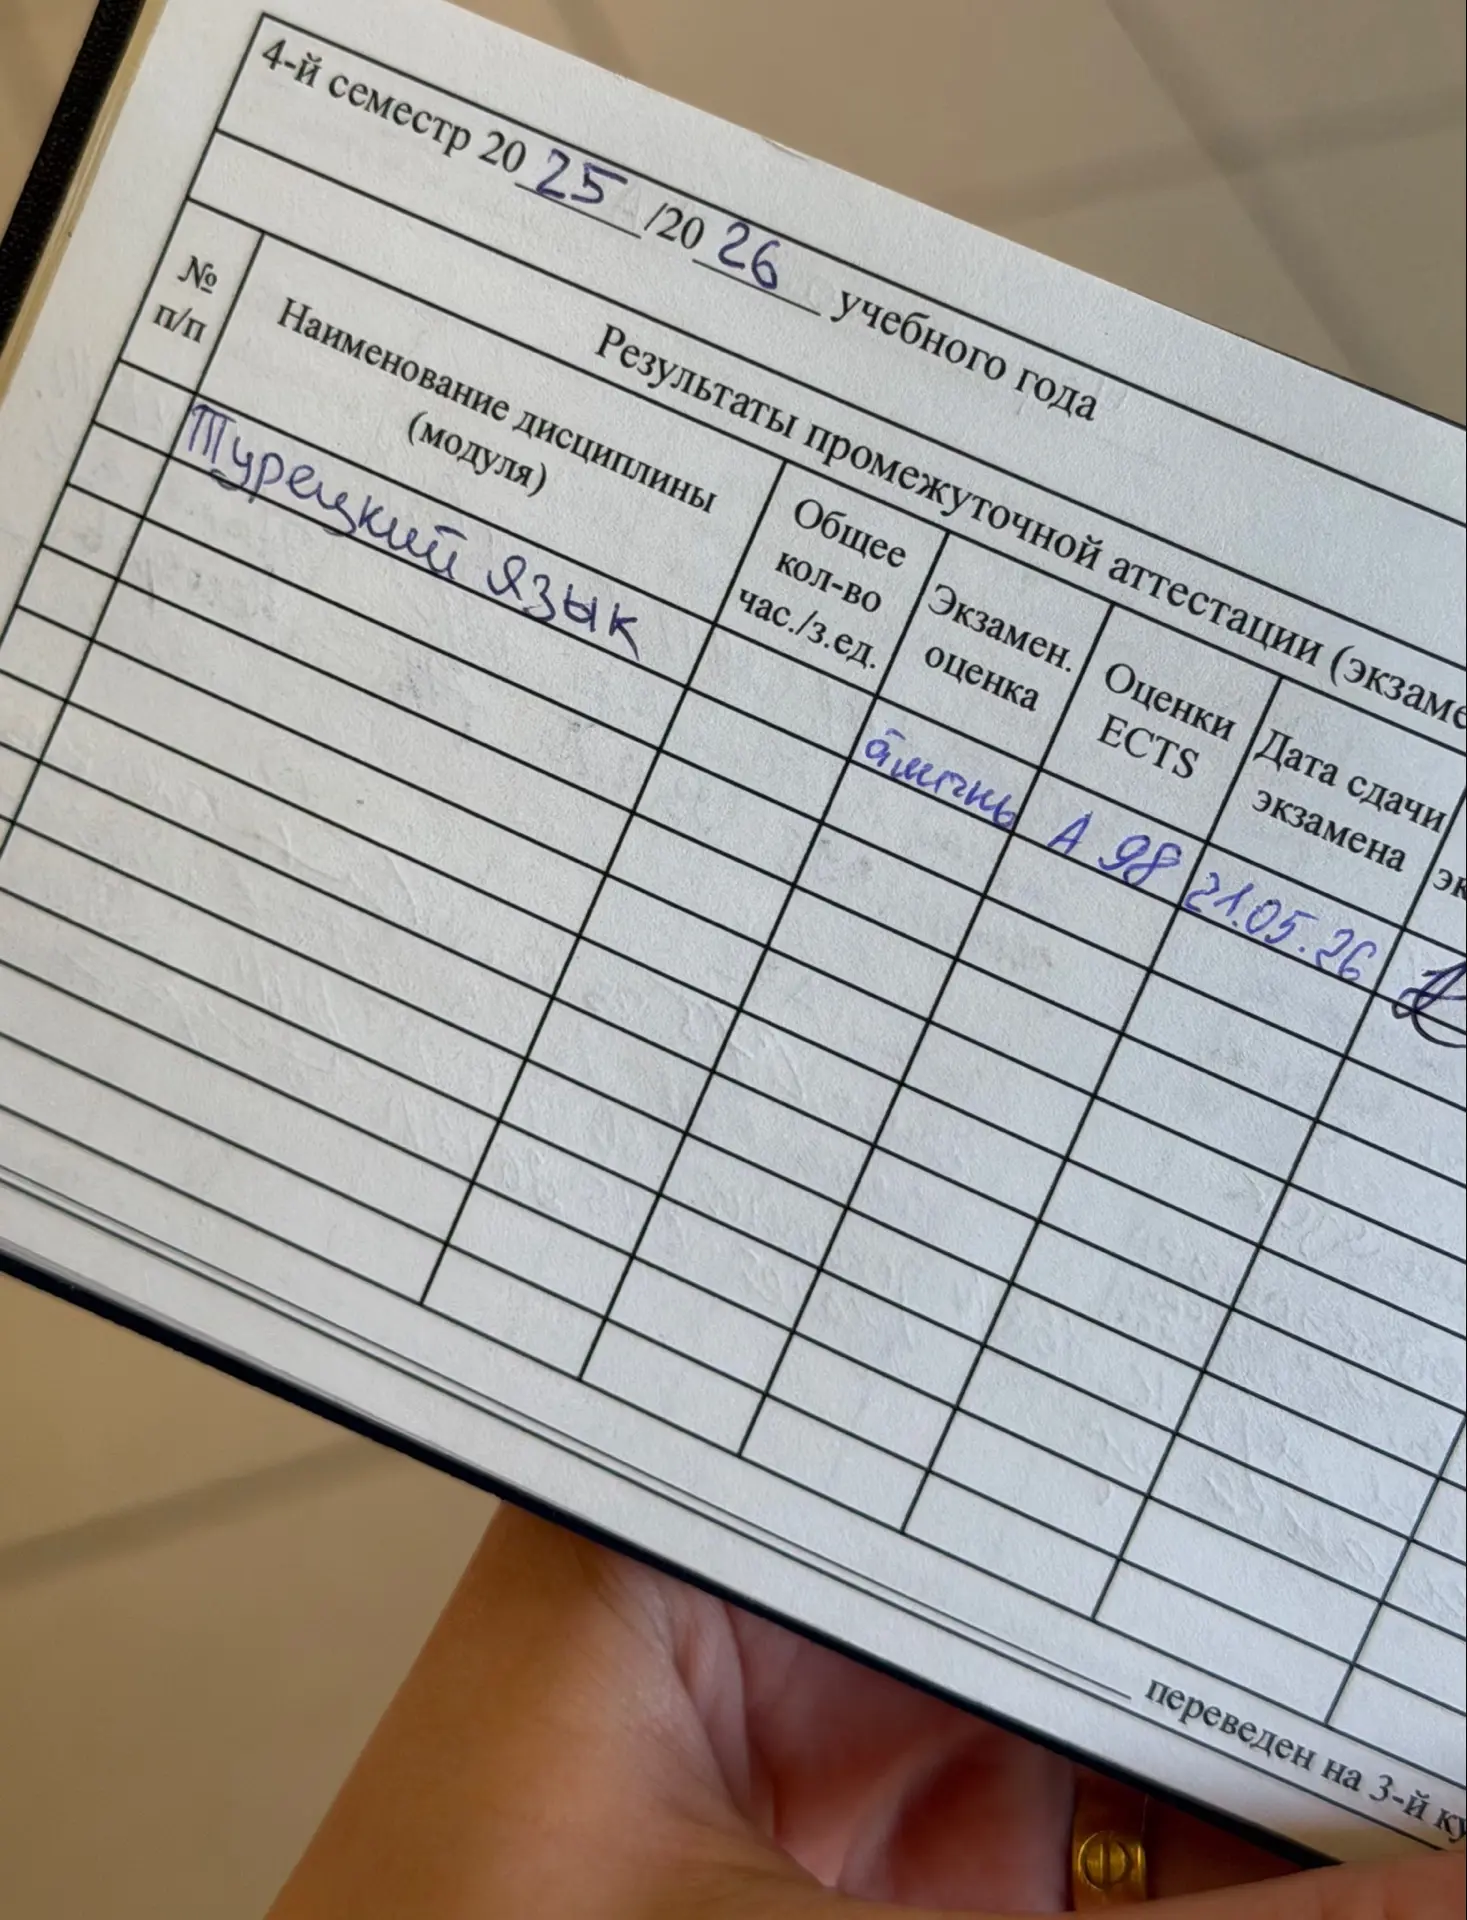 4-й семестр 2025/2026 учебного года
Результаты промежуточной аттестации (экзаме
№ п/п
Наименование дисциплины
(модуля)
Общее
кол-во
час./з.ед.
Экзамен.
оценка
Оценки
ECTS
Дата сдачи
экзамена
эк
Турецкий язык
A 98
21.05.26
переведен на 3-й ку